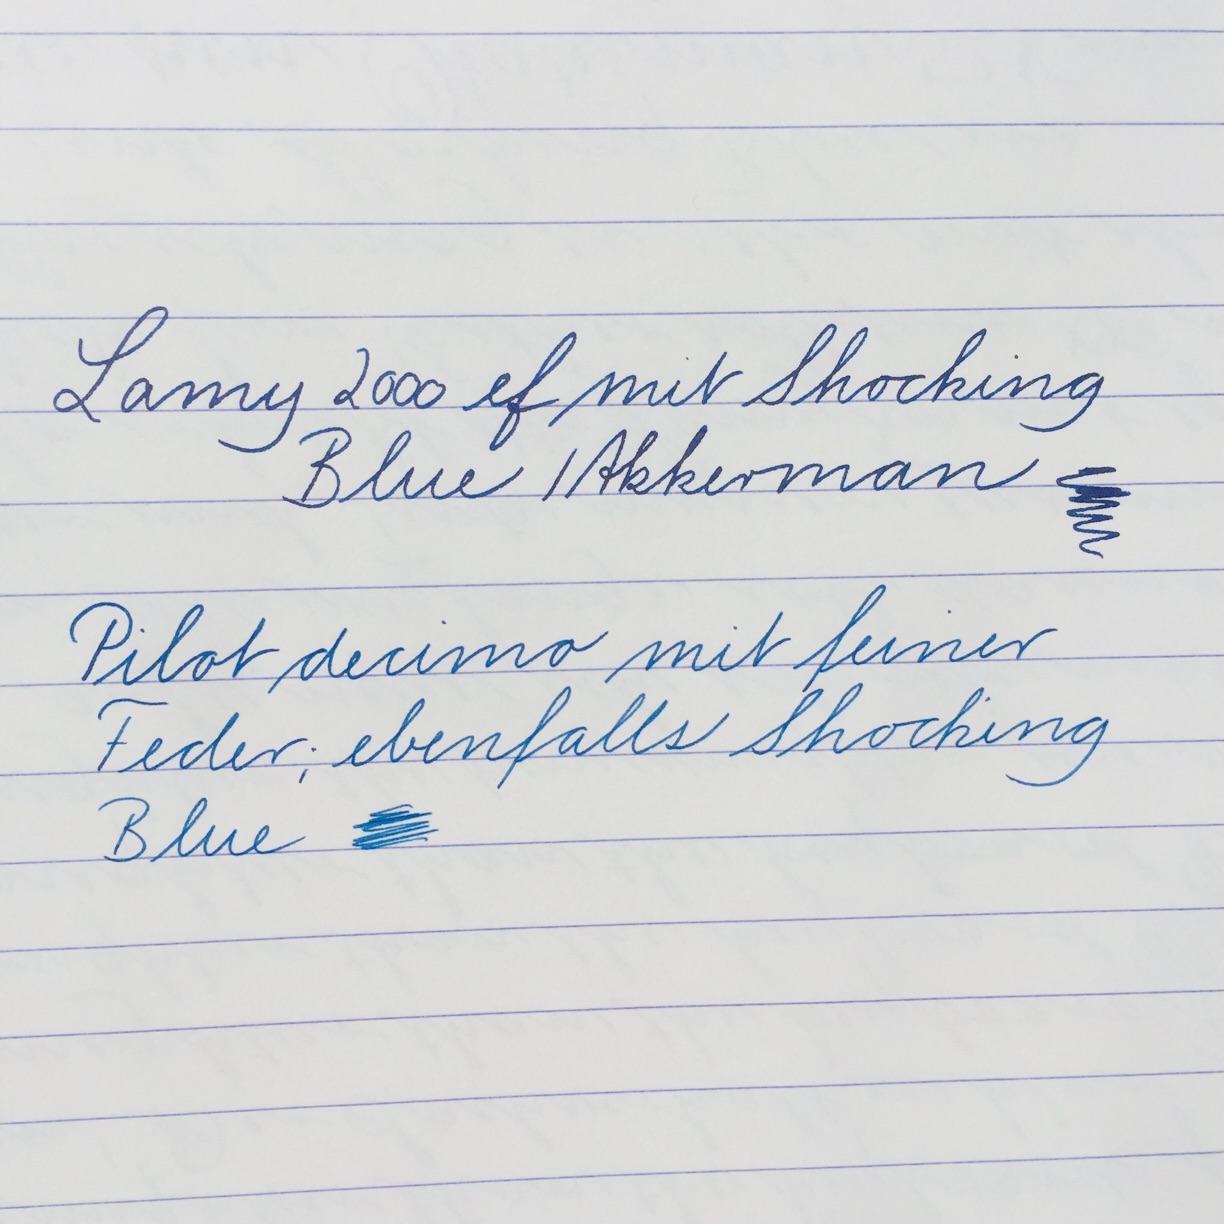 Lamy 2000 ef mit Shocking
Blue /Akkerman
Pilot decimo mit feiner
Feder; ebenfalls Shocking
Blue